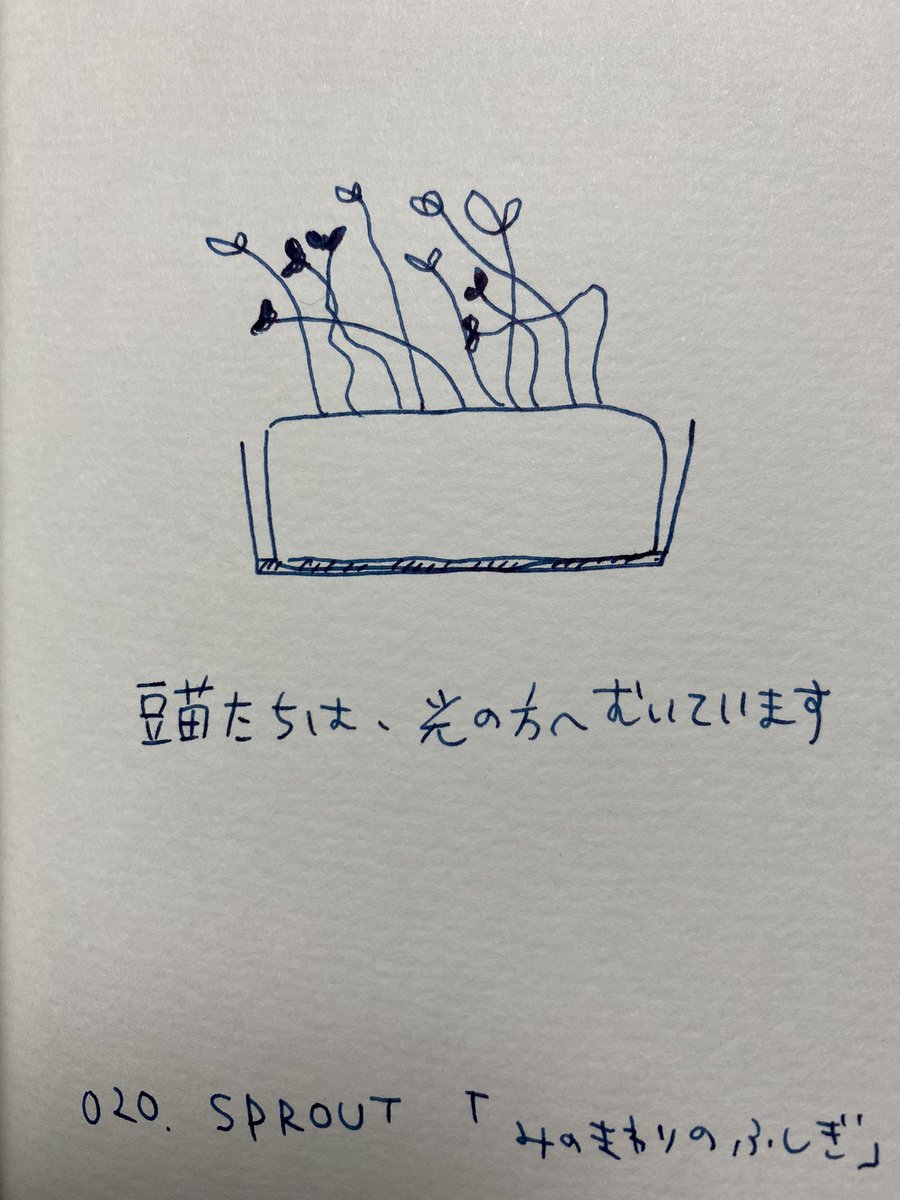 豆苗たちは、光の方へむいています
020. SPROUT 「みのまわりのふしぎ」